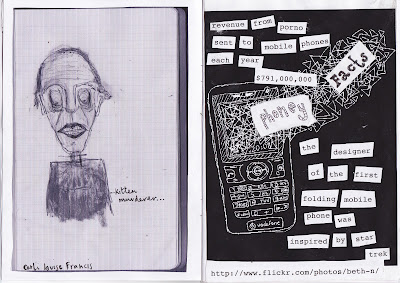 kitten
murderer...
Louise Francis
revenue from porno
sent to mobile phones
each year
$791,000,000
Facts
phoney
the designer
of the first
folding mobile
phone was
inspired by star
trek
vodafone
http://www.flickr.com/photos/beth-n/